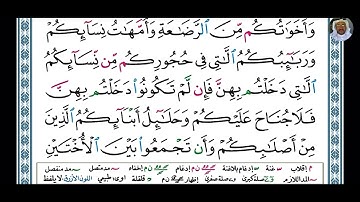 وَأَخَوَاتُكُم مِّنَ الرَّضَاعَةِ وَأُمَّهَاتُ نِسَائِكُمْ
وَرَبَائِبُكُمُ اللَّاتِي فِي حُجُورِكُم مِّن نِّسَائِكُمُ
اللَّاتِي دَخَلْتُم بِهِنَّ فَإِن لَّمْ تَكُونُوا دَخَلْتُم بِهِنَّ
فَلَا جُنَاحَ عَلَيْكُمْ وَحَلَائِلُ أَبْنَائِكُمُ الَّذِينَ
مِنْ أَصْلَابِكُمْ وَأَن تَجْمَعُوا بَيْنَ الْأُخْتَيْنِ